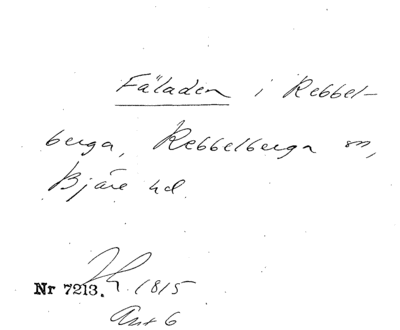 Fäladen i Rebbel-
berga, Rebbelberga sn,
Bjäre hd.
Nr 7213. 1815
Ant 6